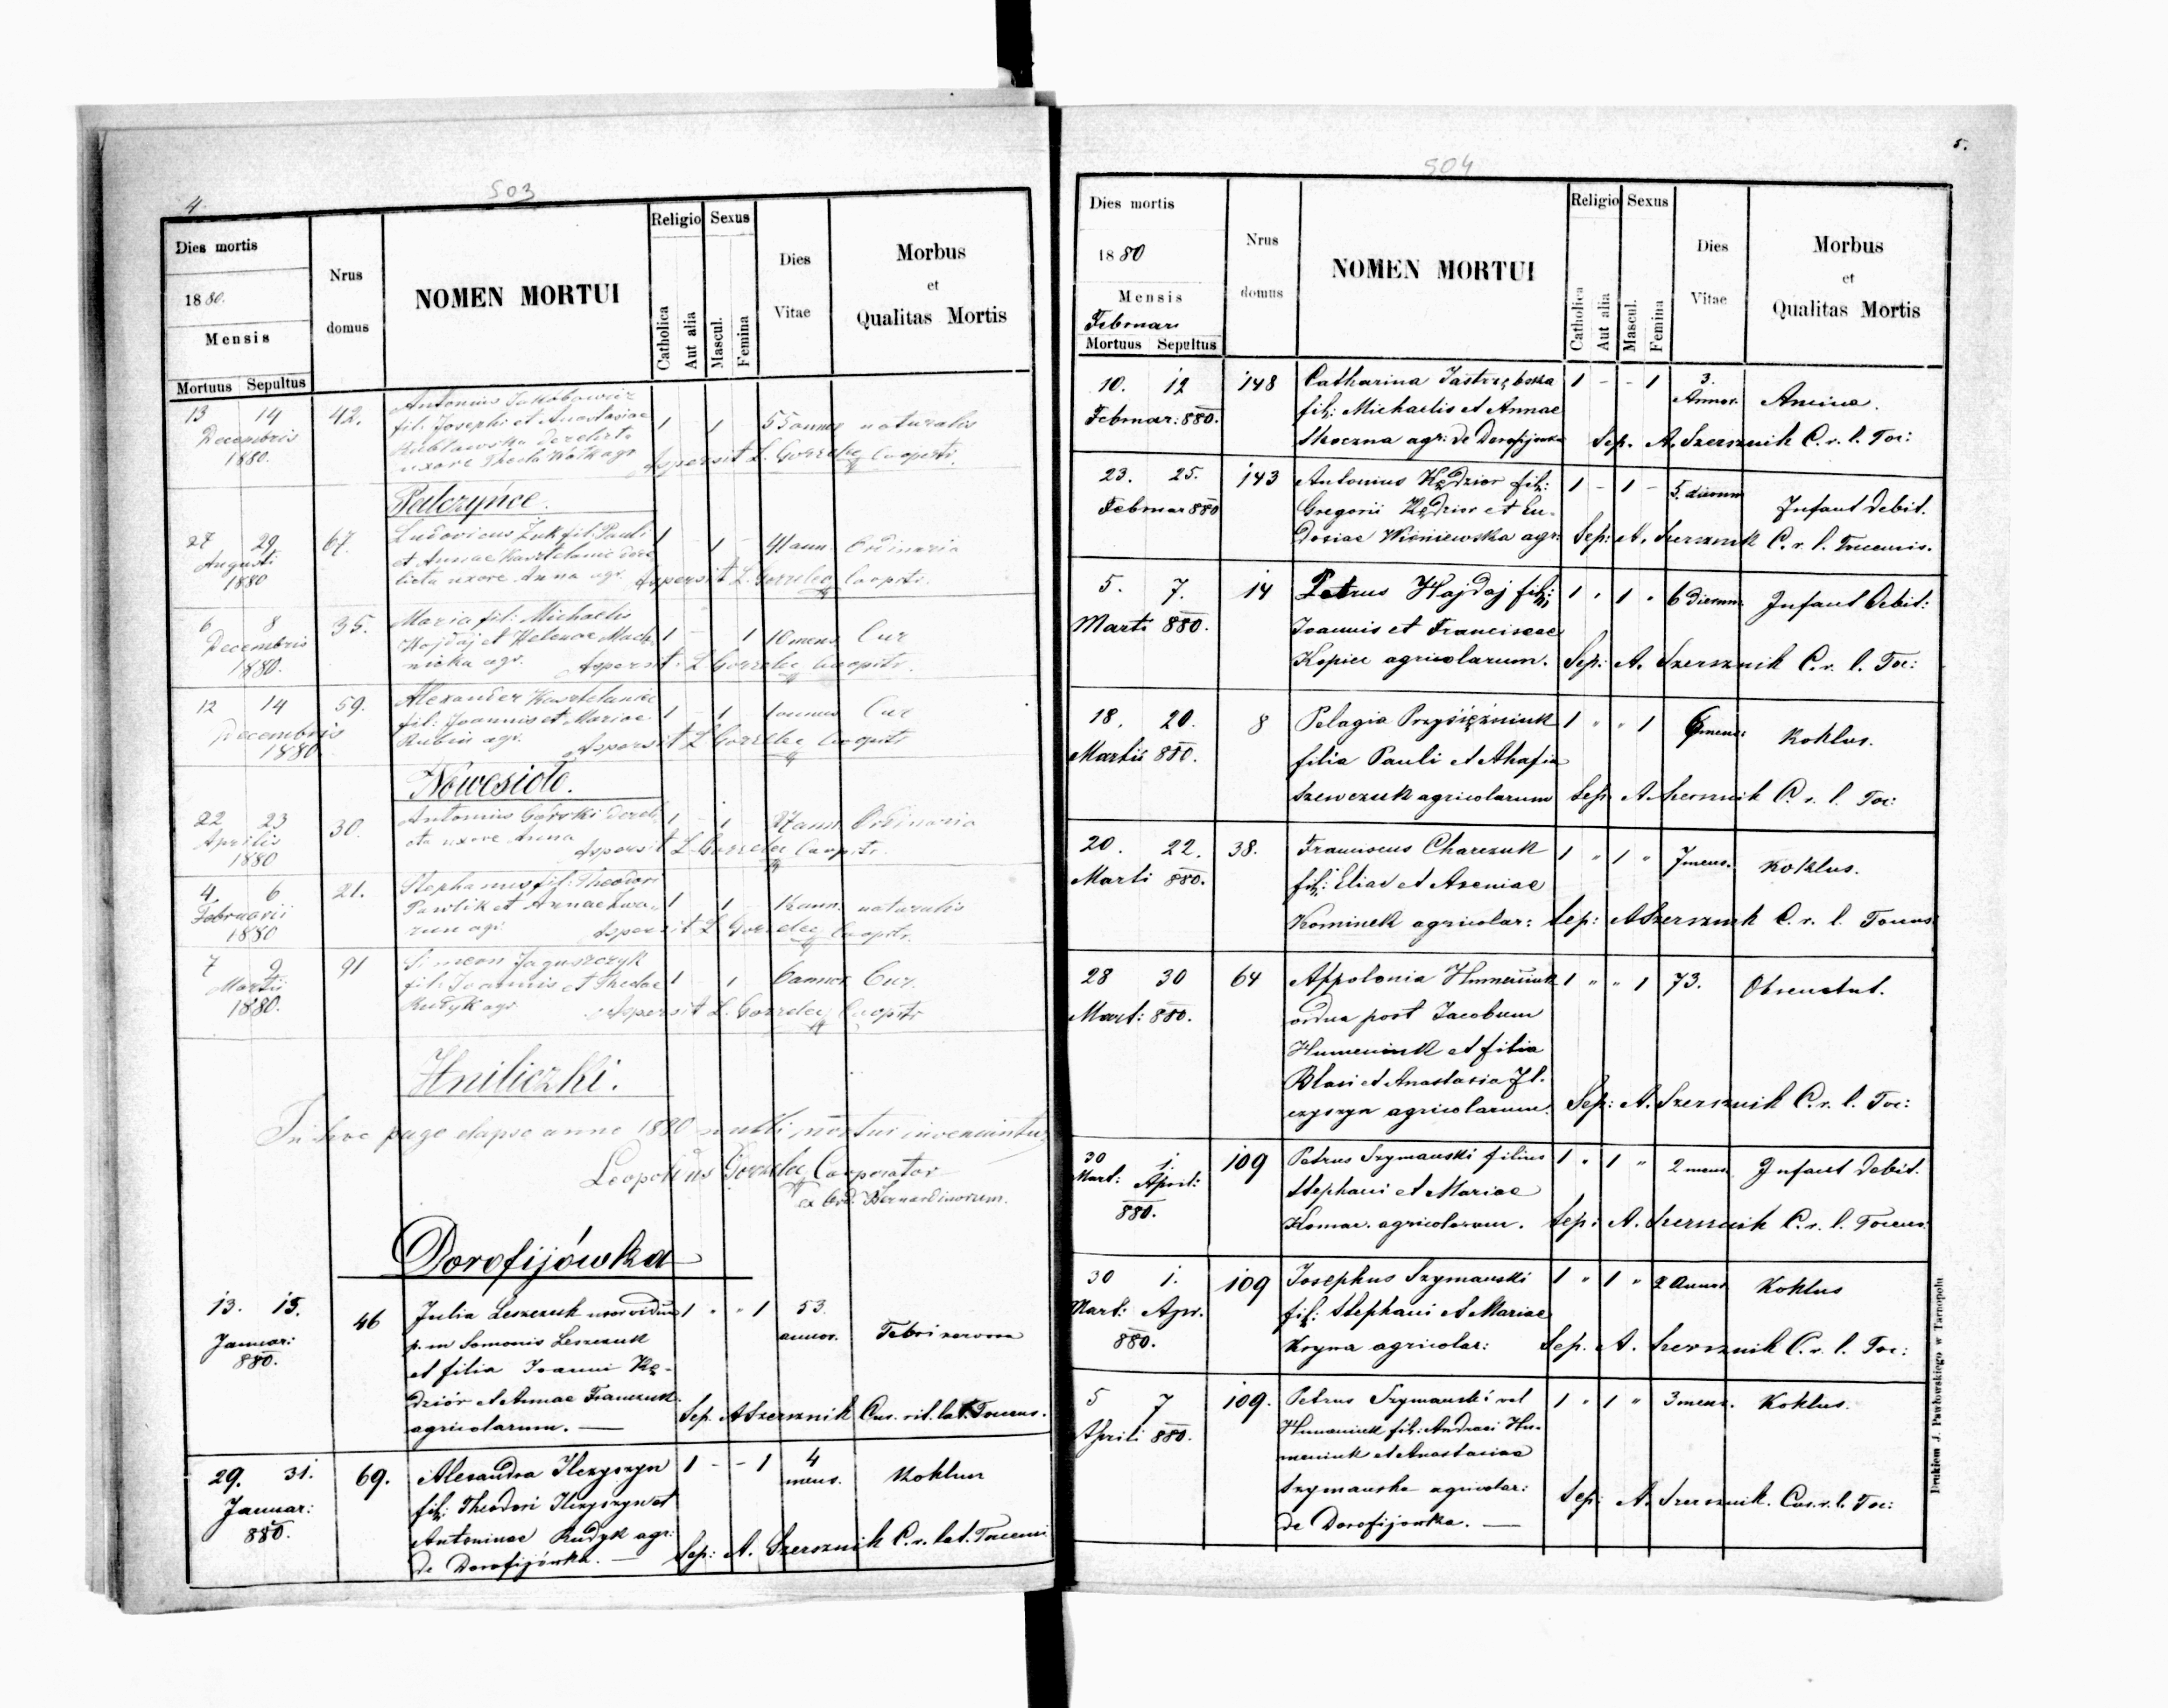 4
503
Dies mortis
1880.
Mensis
Mortuus Sepultus
Nrus
domus
NOMEN MORTUI
Religio
Catholica
Aut alia
Sexus
Mascul.
Femina
Dies
Vitae
Morbus
et
Qualitas Mortis
13 14 42. Antonius Jakobowicz
Decembris fil: Josephi et Anastasiae 1 1 55 annor naturalis
1880. derelicta
uxore agr Aspersit L. Gorzelec Cooprts.
Palczyńce.
27 29 67. Ludovicus Żuk fil: Pauli 1 1 41 ann. Ordinaria
Augusti et Annae dere
1880 licta uxore Anna agr. Aspersit L. Gorzelec Cooprts.
6 8 35. Maria fil: Michaelis
Decembris Hajdaj et Helenae Mach 1 - 1 10 mens Cur
1880. nicka agr. Aspersit L Gorzelec Cooprts.
12 14 59. Alexander
Decembris fil: Joannis et Mariae 1 - 1 Cur
1880. Rubin agr. Aspersit L Gorzelec Cooprts
Nowesioło.
22 23 30. Antonius Górski dereli 1 - 1 ann. Ordinaria
Aprilis cta uxore Anna
1880 Aspersit L Gorzelec Cooprts.
4 6 21. Stephanus fil: Theodori
Februarii Pawlik et Annae 1 1 ann. naturalis
1880 agr. Aspersit L Gorzelec Cooprts.
7 9 91 Simeon Jaguszczyk
Martii fil: Joannis et Theclae 1 - 1 6 annor Cur.
1880. Rudyk agr Aspersit L. Gorzelec Cooprts
Hniliczki.
In hoc pago elapso anno 1880 nulli mortui inveniuntur
Leopoldus Gorzelec Cooperator
ex Ord. Bernardinorum.
Dorofijówka
13. 15. 46 Julia Leszczuk uxor vidua 1 " " 1 53.
Januar: p. m Leszczuk annor. Febri nervosa
880. et filia Joanni Kę-
dziór et Annae Franczuk
agricolarum. — Sep. A Szersznik Cus. rit. lat. Toceus.
29. 31. 69. Alexandra Ilczyszyn 1 - - 1 4 mens. Koklun
Januar: fil: Theodori Ilczyszyn et
880. Antoninae Rudyk agr:
de Dorofijówka. — Sep: A. Szersznik C. r. lat. Toceus
5.
504
Dies mortis
1880
Mensis
Februar
Mortuus Sepultus
Nrus
domus
NOMEN MORTUI
Religio
Catholica
Aut alia
Sexus
Mascul.
Femina
Dies
Vitae
Morbus
et
Qualitas Mortis
10. 12 148 Catharina Jastrzębska 1 - - 1 3. Annor.
Februar: 880. fil: Michaelis et Annae
Skoczna agr: de Dorofijówka Sep. A. Szersznik C. r. l. Toc:
23. 25. 143 Antonius Kędzior fil: 1 - 1 - 5. dierum Infant debit.
Februar 880 Gregorii Kędzior et Eu-
dosiae Wiśniewska agr: Sep: A. Szersznik C. r. l. Toceunis.
5. 7. 14 Petrus Hajdaj fil: 1 " 1 " 6 dierum. Infant debit:
Marti 880. Joannis et Franciscae
Kopiec agricolarum. Sep: A. Szersznik C. r. l. Toc:
18. 20. 8 Pelagia Przysiężniuk 1 " " 1 6 mens: Koklus.
Martii 880. filia Pauli et Ahafia
Szewczuk agricolarum Sep. A. Szersznik C. r. l. Toc:
20. 22. 38. Franciscus Charczuk 1 " 1 " 7 mens. Koklus.
Marti 880. fil: Eliae et Axeniae
Kominek agricolar: Sep: A Szersznik C. r. l. Toceus
28 30 64 Appolonia Humeniuk 1 " " 1 73.
Mart: 880. vidua post Jacobum
Humeniuk et filia
Blasi et Anastasia Il-
czyszyn agricolarum. Sep: A. Szersznik C. r. l. Toc:
30 1. 109 Petrus Szymanski filius 1 " 1 " 2 mens. Infant debit.
Mart: April: Stephani et Mariae
880. Komar. agricolarum. Sep: A. Szersznik C. r. l. Toceus.
30 1. 109 Josephus Szymanski 1 " 1 " 2 Annor. Koklus
Mart: Apr. fil: Stephani et Mariae
880. agricolar: Sep. A. Szersznik C. r. l. Toc:
5 7 109. Petrus Szymanski vel 1 " 1 " 3 mens. Koklus.
Aprili 880. Humeniuk fil: Andreai Hu-
meniuk et Anastasiae
Szymanska agricolar:
de Dorofijowka. — Sep: A. Szersznik. Cus. r. l. Toc:
Drukiem J. Pawłowskiego w Tarnopolu